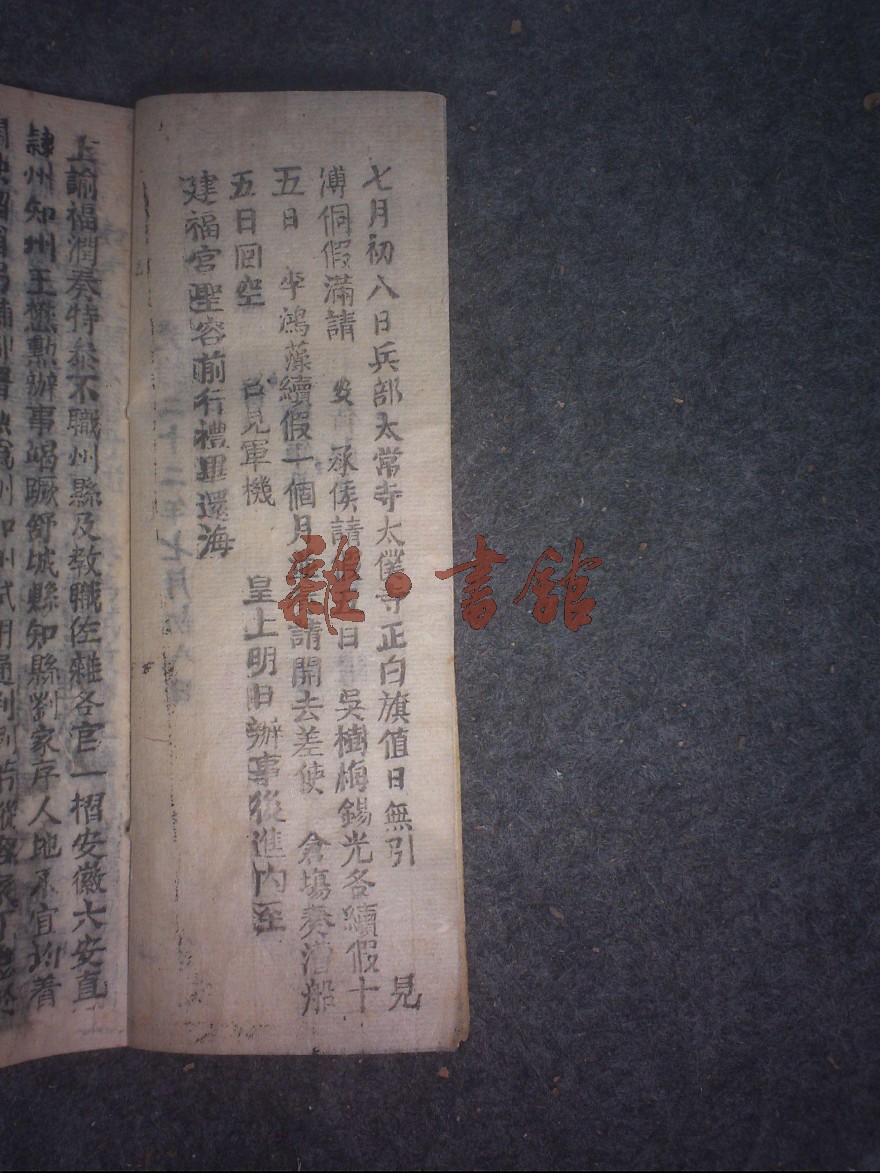 七月初八日兵部太常寺太僕寺正白旗值日無引　見
溥侗假滿請　安　承侯請　日　吳樹梅錫光各續假十
五日　李鴻藻續假一個月　請開去差使　倉塲奏漕船
五日回空　召見軍機　皇上明日辦事後進內至
建福宮聖容前行禮畢還海
二十二年七月初八日
上諭福潤奏特叅不職州縣及教職佐雜各官一摺安徽六安直
隷州知州王懋勳辦事竭蹶舒城縣知縣劉家序人地不宜均着
雜·書館